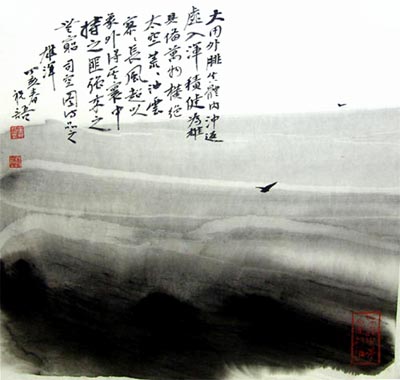 大用外腓真體內沖返
虛入渾積健為雄
具備萬物橫絕
太空荒々油雲
寥々長風超以
象外得其寰中
持之匪強来之
無窮 司空圖詩品之
雄渾
丁亥春